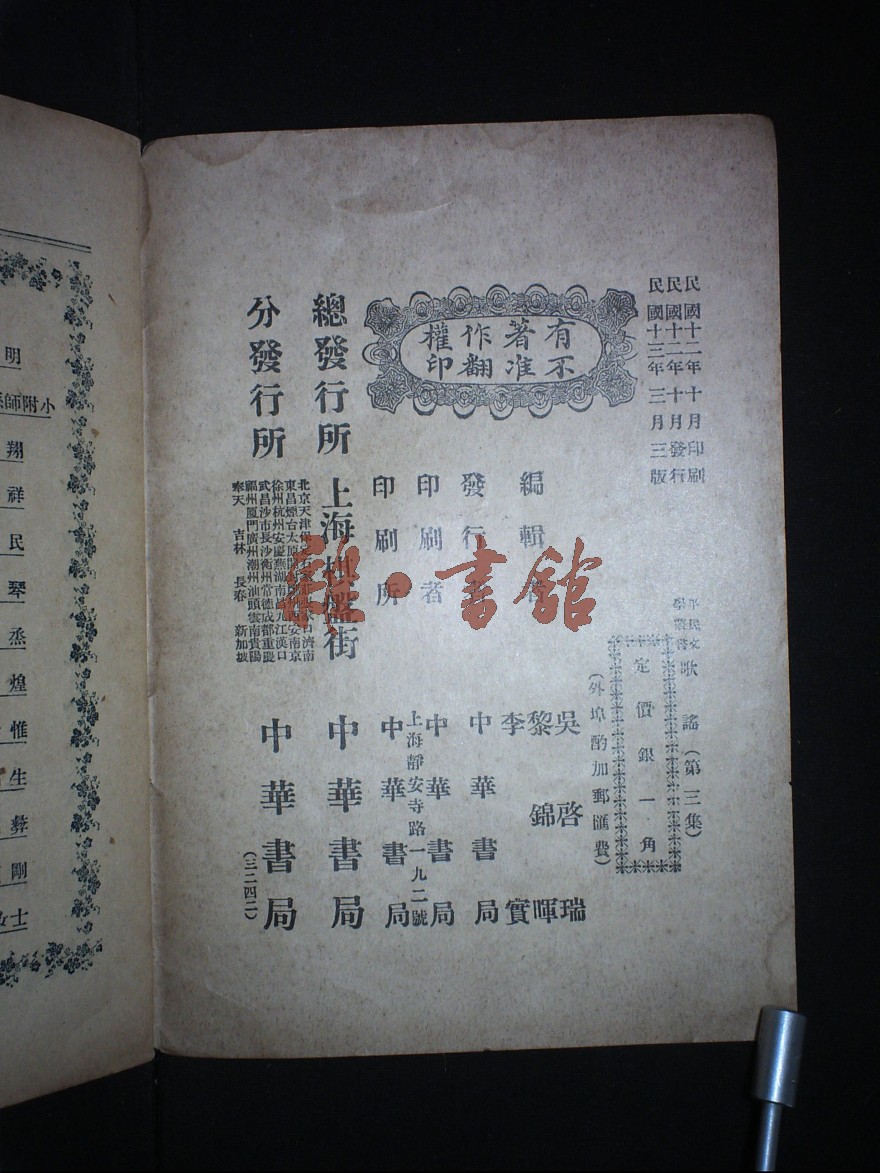 民國十二年十月印刷
民國十二年十月發行
民國十三年三月三版
平民文
學叢書
歌謠（第三集）
定價銀一角
（外埠酌加郵匯費）
有著作權
不准翻印
編輯者
吳啓瑞
黎錦暉
李實
發行者 中華書局
印刷者 中華書局
上海靜安寺路一九二號
印刷所 中華書局
總發行所 上海棋盤街 中華書局
分發行所
北京天津保
口濟南
東昌煙台太原開
西安南京
徐州杭州安慶蕪湖南昌九江漢口
武昌沙市長沙衡州常德成都重慶
福州廈門廣州潮州汕頭雲南貴陽
奉天 吉林 長春 新加坡
中華書局
（三二四二）
書舘
明
小附師
翔
祥
民
琴
烝
煌
惟
生
彝
剛
士